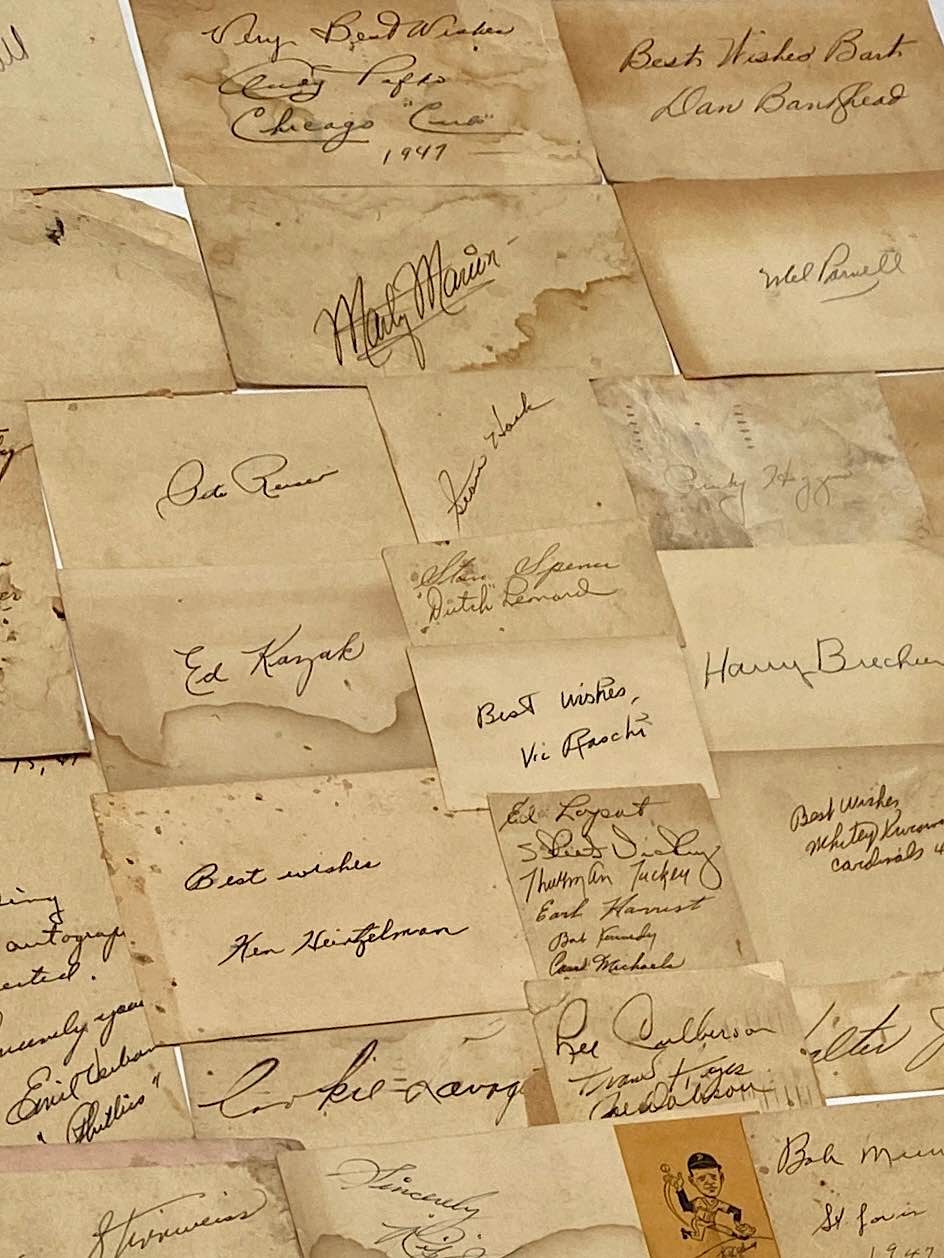 Very Best Wishes
Andy Pafko
Chicago "Cubs"
1947
Best Wishes Bart
Dan Bankhead
Marty Marion
Mel Parnell
Pete Reiser
Stan Hack
Pinky Higgins
Stan Spence
"Dutch" Leonard
Ed Kazak
Harry Breche
Best Wishes,
Vic Raschi
Best Wishes
Whitey Kurows
Cardinals 4
Ed Lopat
Thurman Tucker
Earl Harrist
Bob Kennedy
Cass Michaels
Best wishes
Ken Heintzelman
autograp
ested.
ncerely your
Emil Verban
"Phillies"
Cookie Lavage
Lee Culberson
Frank Kyes
Joe Dobson
Stirnweiss
Sincerely
Bob Mun
St Louis
1947